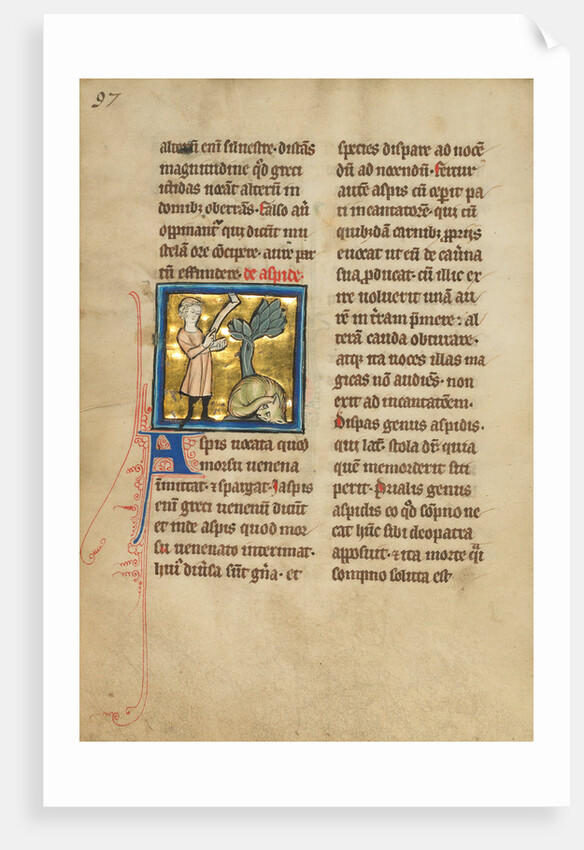 97
alterū enī silvestre. distās
magnitudine q̄d greci
ictidas vocāt alterū in
domibꝫ oberrās. Falso aū
oppinantᷣ qui dicūt mu
stelam ore cōcipere. aure par
tū effundere. de aspide.
Aspis vocata quod
morsu venena
īmittat. ⁊ spargat. Jaspis
enī greci venenū dicūt
et inde aspis quod mor
su venenato interimat.
huiꝰ diūsa sūt gn̄a. et
species dispare ad nocē
dū ad nocendū. Fertur
autē aspis cū ceperit pa
ti incantatorē. qui cū
quibꝰdā carnibꝫ ꝓpriis
evocat ut eū de cav̄na
sua ꝓducat. cū illic ex
ire voluerit unā au
rē in t̄ram p̄mere: al
terā cauda obturare.
atqꝫ ita voces illas ma
gicas nō audiēs. non
exit ad incantatēm.
Dispas genus aspidis.
qui lat̄. stola dr̄. quia
quē memorderit siti
perit. Prialis genus
aspidis eo q̄d sōpno ne
cat hūc sibi cleopatra
apposuit. ⁊ ita morte q̄i
sompno soluta est